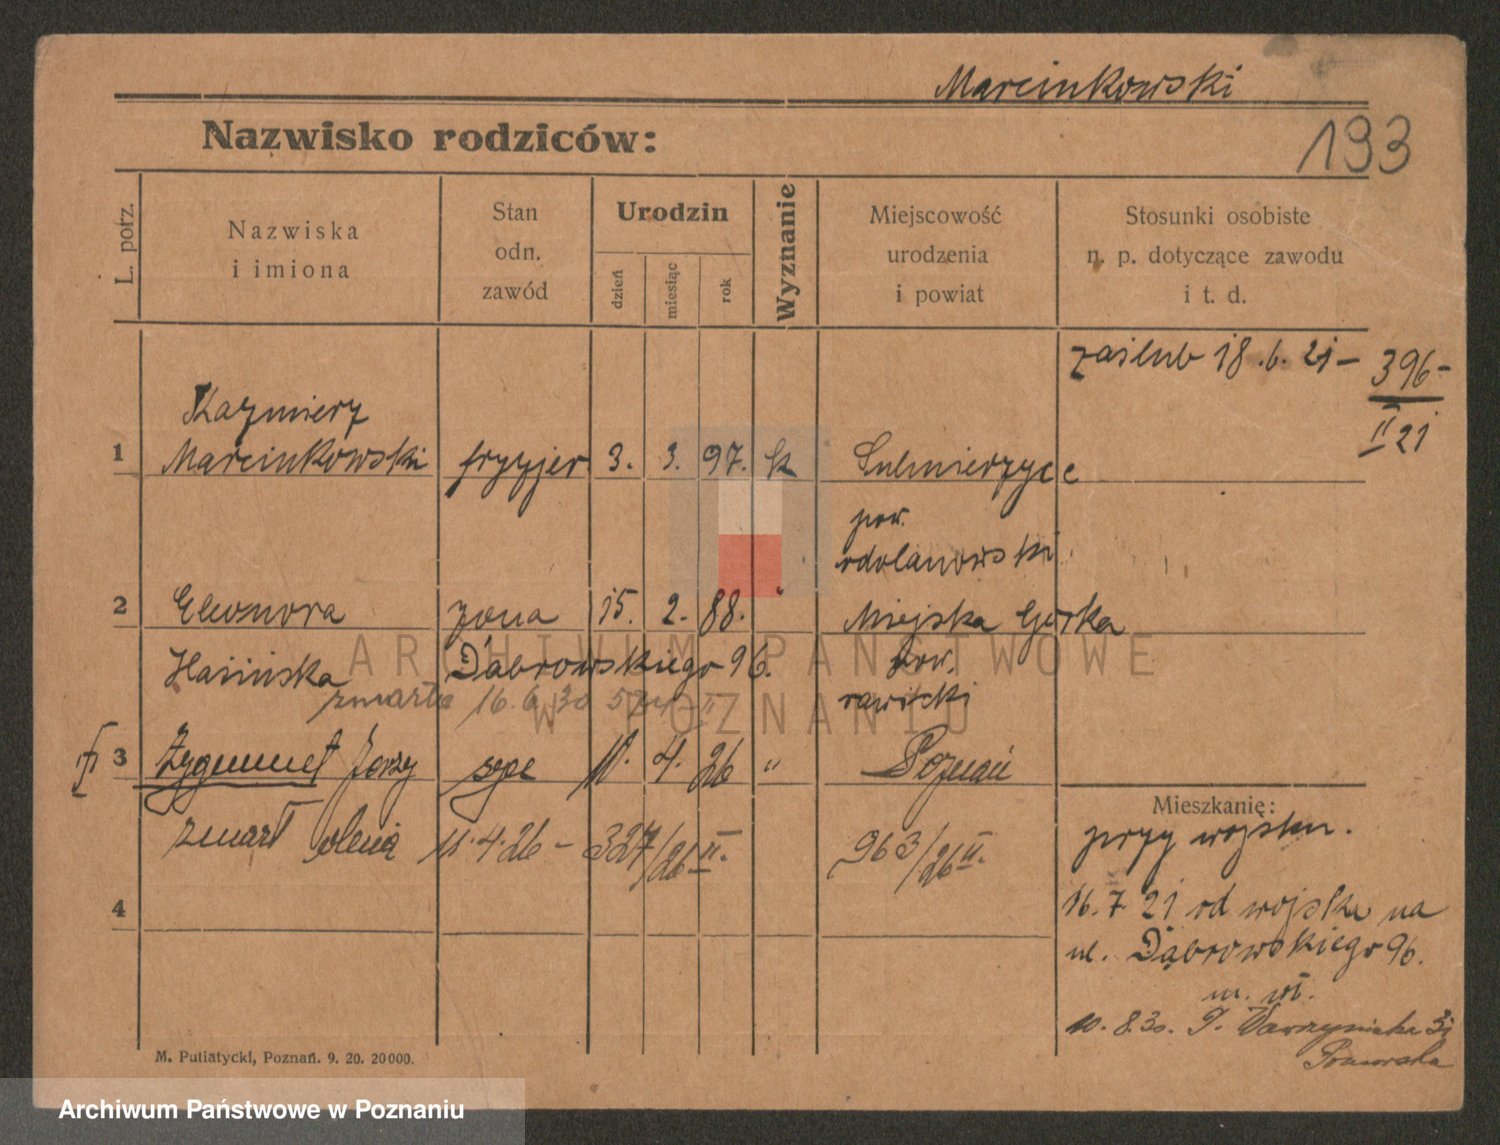 Marcinkowski
Nazwisko rodziców:
193
L. porz.
Nazwiska
i imiona
Stan
odn.
zawód
Urodzin
dzień
miesiąc
rok
Wyznanie
Miejscowość
urodzenia
i powiat
Stosunki osobiste
n. p. dotyczące zawodu
i t. d.
zaślub 18.6.21 – 396 –
II 21
Kazmierz
1 Marcinkowski fryzjer 3. 3. 97. k Sulmierzyce
pow.
odolanowski.
2 Eleonora żona 15. 2. 88. " Miejska Górka
Hasińska Dąbrowskiego 96. pow.
zmarła 16.6.30 II rawicki
3 Zygmunt Jerzy syn 11. 4. 26 " Poznań
Mieszkanię:
przy wojsku.
zmarł 11.4.26 – 327/26 II. 963/26 II.
16.7 21 od wojska na
4
ul. Dąbrowskiego 96.
m. wł.
10.8.30. P.
M. Putiatycki, Poznań. 9. 20. 20 000.
ARCHIWUM PAŃSTWOWE
W POZNANIU
Archiwum Państwowe w Poznaniu